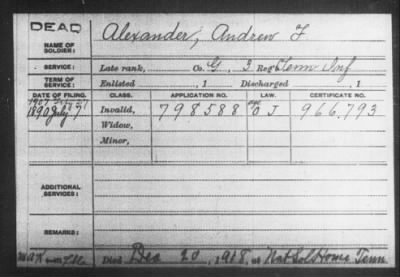 DEAD
NAME OF SOLDIER: Alexander, Andrew F
SERVICE: Late rank, Co. G, 3 Reg't Tenn Inf
TERM OF SERVICE: Enlisted , 1 Discharged , 1
DATE OF FILING. CLASS. APPLICATION NO. LAW. CERTIFICATE NO.
1907
1890 July 7 Invalid, 798588 O J 966.793
Widow,
Minor,
ADDITIONAL SERVICES:
REMARKS:
Died Dec 20, 1918, at Nat Sol Home Tenn